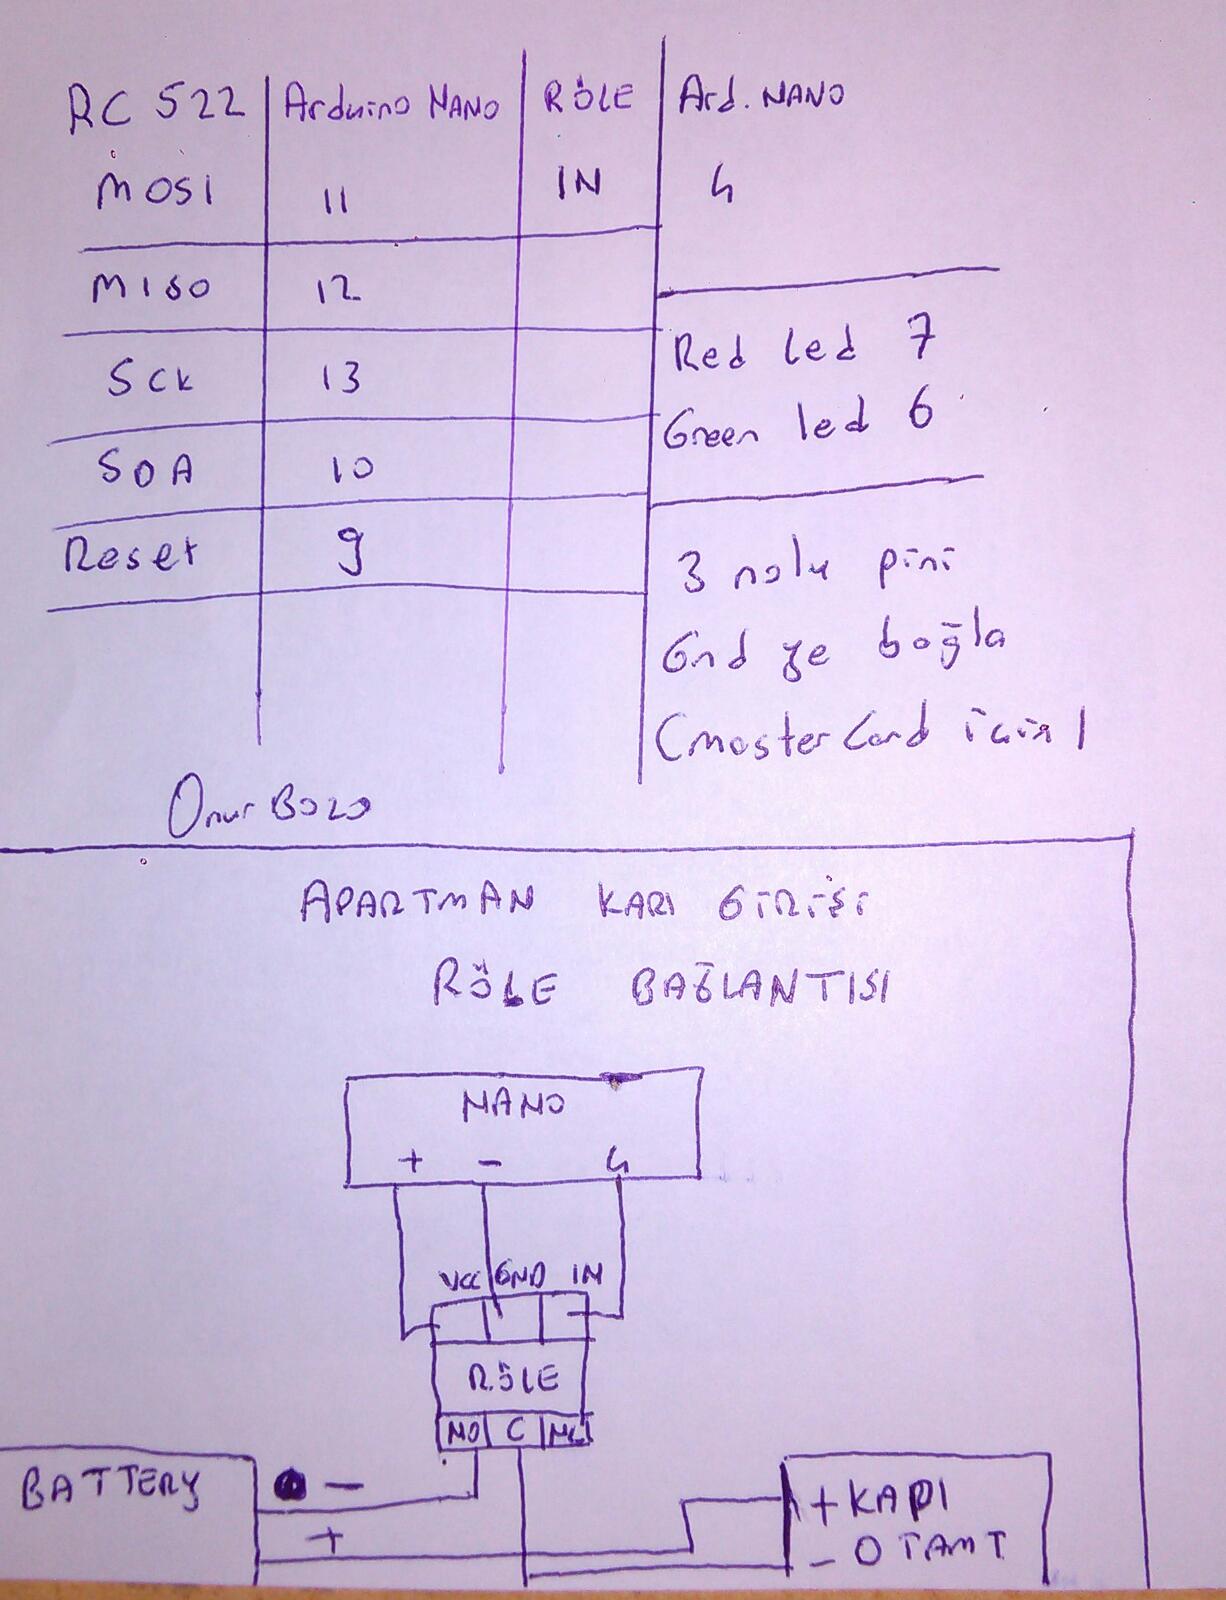 RC 522 Arduino NANO RÖLE Ard. NANO
MOSI 11 IN 4
MISO 12
Sck 13
SDA 10
Reset 9
Red led 7
Green led 6
3 nolu pini
Gnd ye bağla
(master Card için)
Onur Bozo
APARTMAN KAPI GİRİŞİ
RÖLE BAĞLANTISI
NANO
+ - 4
VCC GND IN
RÖLE
NO C NC
BATTERY -
+
+ KAPI
- OTAMT